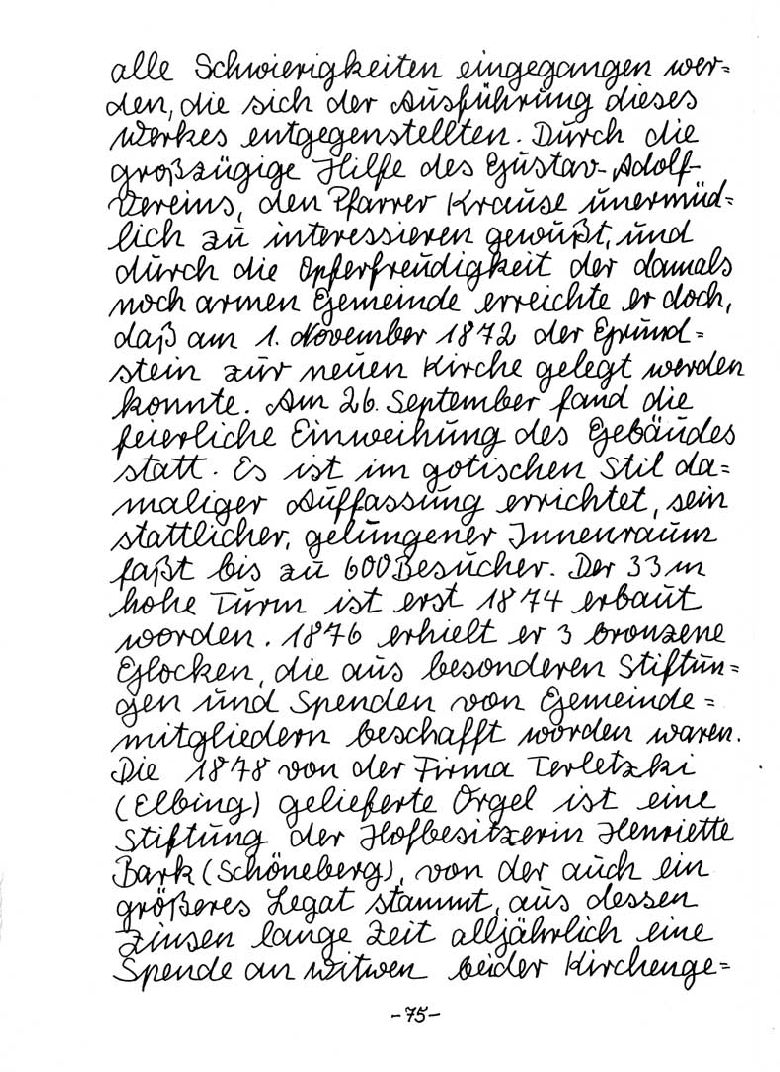 alle Schwierigkeiten eingegangen wer=
den, die sich der Ausführung dieses
Werkes entgegenstellten. Durch die
großzügige Hilfe des Gustav-Adolf-
Vereins, den Pfarrer Krause unermüd=
lich zu interessieren gewußt, und
durch die Opferfreudigkeit der damals
noch armen Gemeinde erreichte er doch,
daß am 1. November 1872 der Grund=
stein zur neuen Kirche gelegt werden
konnte. Am 26. September fand die
feierliche Einweihung des Gebäudes
statt. Es ist im gotischen Stil da=
maliger Auffassung errichtet, sein
stattlicher, gelungener Innenraum
faßt bis zu 600 Besucher. Der 33 m
hohe Turm ist erst 1874 erbaut
worden. 1876 erhielt er 3 bronzene
Glocken, die aus besonderen Stiftun=
gen und Spenden von Gemeinde=
mitgliedern beschafft worden waren.
Die 1878 von der Firma Terletzki
(Elbing) gelieferte Orgel ist eine
Stiftung der Hofbesitzerin Henriette
Bark (Schöneberg), von der auch ein
größeres Legat stammt, aus dessen
Zinsen lange Zeit alljährlich eine
Spende an Witwen beider Kirchenge=
-75-